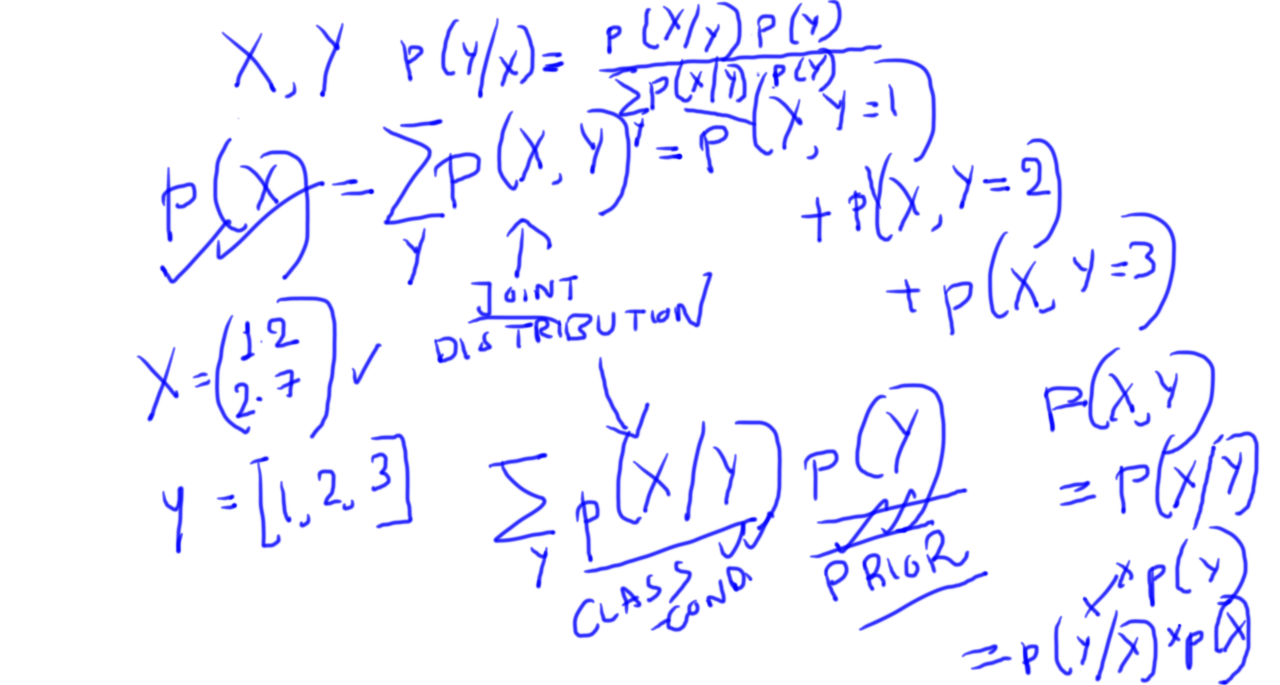 X, Y P(Y/X) = P(X/Y) P(Y)
∑ P(X/Y) P(Y)
Y
p(X) = ∑ P(X, Y) = P(X, Y=1)
Y
+ P(X, Y=2)
+ P(X, Y=3)
JOINT
DISTRIBUTION
X = (1.2
2.7)
Y = [1, 2, 3]
∑ p(X/Y) P(Y)
Y
CLASS
COND
PRIOR
P(X,Y)
= P(X/Y)
× P(Y)
= P(Y/X) × P(X)